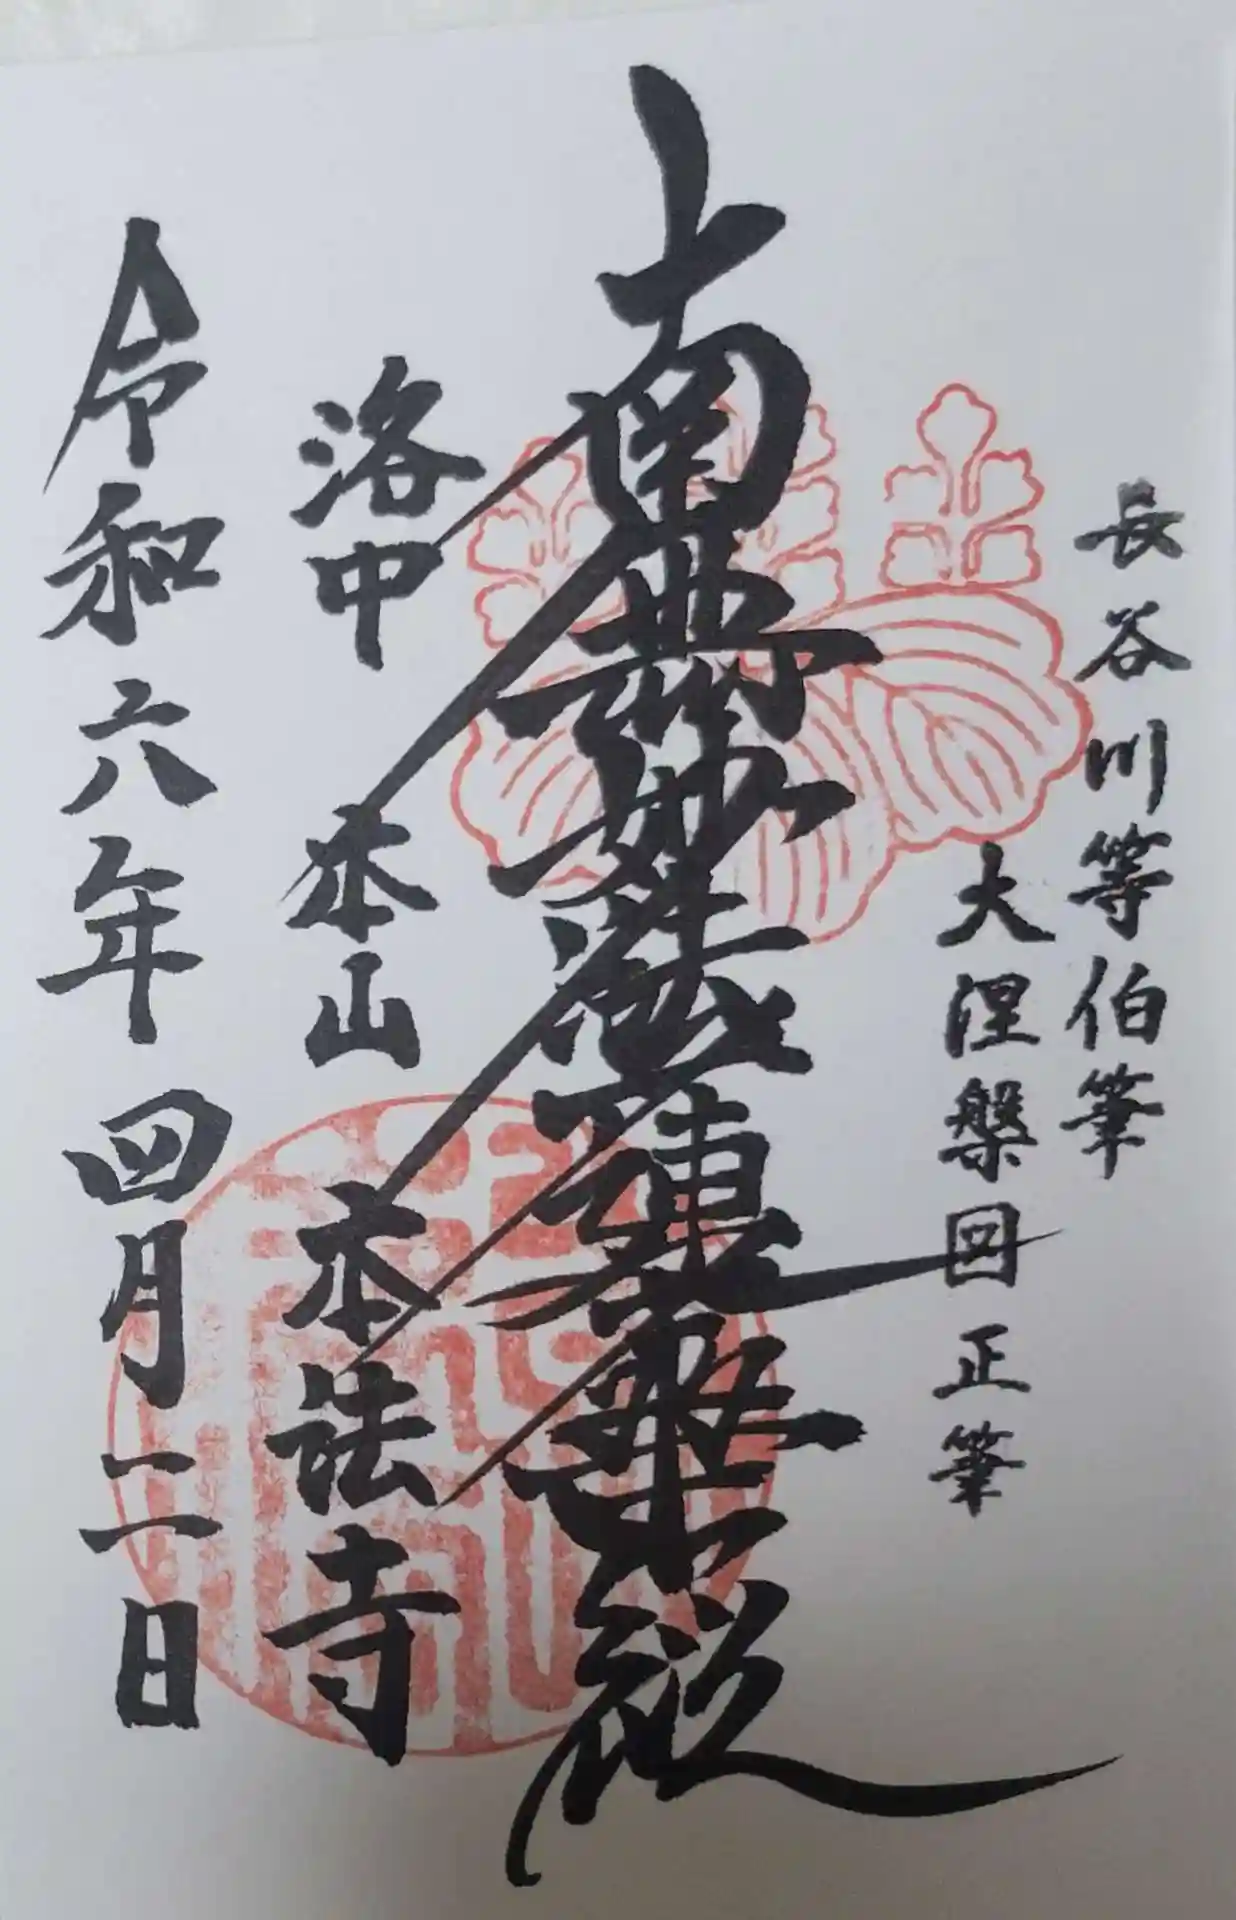 長谷川等伯筆
大涅槃図 正筆
南無妙法蓮華経
洛中 本山 本法寺
令和六年 四月二日